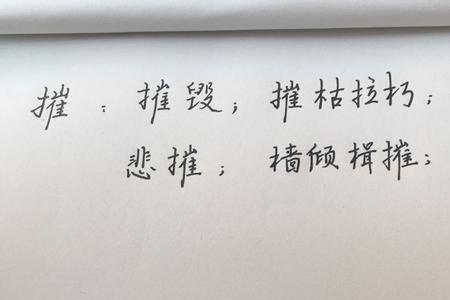 摧：摧毁；摧枯拉朽；
悲摧；樯倾楫摧；